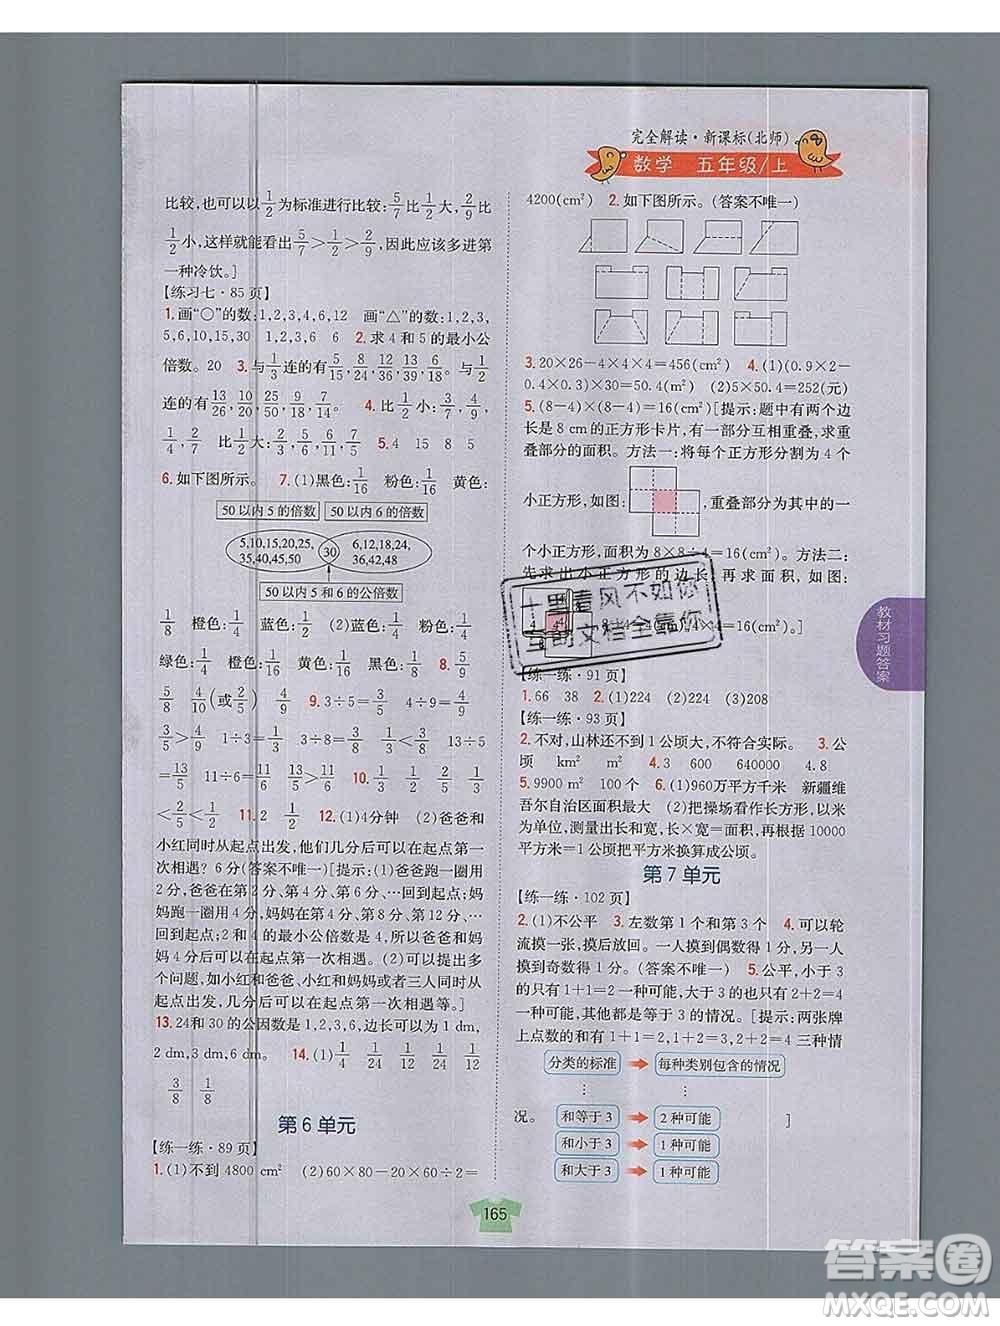 完全解读·新课标(北师)
数学 五年级/上
比较,也可以以1/2为标准进行比较:5/7比1/2大,2/9比
1/2小,这样就能看出5/7>1/2>2/9,因此应该多进第
一种冷饮。]
【练习七·85页】
1.画“○”的数:1,2,3,4,6,12 画“△”的数:1,2,3,
5,6,10,15,30 1,2,3,6 2.求4和5的最小公
倍数。20 3.与1/3连的有
连的有13/26,10/20,25/50,9/18,7/14 4.比1/2小:3/7,2/9,
1/4,2/7 比1/2大: 5.4 15 8 5
6.如下图所示。 7.(1)黑色:1/16 粉色:1/16 黄色:
50以内5的倍数 50以内6的倍数
5,10,15,20,25,
35,40,45,50
30
6,12,18,24,
36,42,48
50以内5和6的公倍数
1/8 橙色:1/4 蓝色:1/2 (2)粉色:1/8 蓝色:1/8
绿色:1/4 橙色:1/4 黄色:1/8 黑色:1/8 8.4/9
5/8 4/10(或2/5) 5/9 9.3÷5=3/5 4÷9=4/9
3/5>4/9 1÷3=1/3 3÷8=3/8 1/3<3/8 13÷5=
13/5 13/5>5/2 10.3/4 2/5 4/5 1/3
<1/2<2/3 11.2 1/2 12.(1)4分钟 (2)爸爸和
小红同时从起点出发,他们几分后可以在起点第一
次相遇? 6分(答案不唯一)[提示:爸爸跑一圈用
2分,爸爸在第2分、4分、…回到起点;妈
妈跑一圈用4分,妈妈在第4分、8分、12分、…回
到起点;2和4的最小公倍数是4,所以爸爸和妈
妈4分后可以在起点第一次相遇。(2)可以提出多
个问题,如小红和爸爸、小红和妈妈或者三人同时从
起点出发,几分后可以在起点第一次相遇等。]
13.24和30的公因数是1,2,3,6,边长可以为1 dm,
2 dm,3 dm,6 dm。 14.(1)1/4 1/24 1/12 1/24 1/12
3/8 1/8
第6单元
【练一练·89页】
1.(1)不到4800 cm² (2)60×80-20×60÷2=
4200(cm²) 2.如下图所示。(答案不唯一)
3.20×26-4×4×4=456(cm²) 4.(1)(0.9×2-
0.4×0.3)×30=50.4(m²) (2)5×50.4=252(元)
5.(8-4)×(8-4)=16(cm²)[提示:题中有两个边
长是8 cm的正方形卡片,有一部分互相重叠,求重
叠部分的面积。方法一:将每个正方形分割为4个
小正方形,如图: ,重叠部分为其中的一
个小正方形,面积为8×8÷4=16(cm²)。方法二:
先求出小正方形的边长,再求面积,如图:
4×4=16(cm²)。]
十里春风不如你
全靠你
【练一练·91页】
1.66 38 2.(1)224 (2)224 (3)208
【练一练·93页】
2.不对,山林还不到1公顷大,不符合实际。 3.公
顷 km² m² 4.3 600 640000 4.8
5.9900 m² 100个 6.(1)960万平方千米 新疆维
吾尔自治区面积最大 (2)把操场看作长方形,以米
为单位,测量出长和宽,长×宽=面积,再根据10000
平方米=1公顷把平方米换算成公顷。
第7单元
【练一练·102页】
2.(1)不公平 3.左数第1个和第3个 4.可以轮
流摸一张,摸后放回。一人摸到偶数得1分,另一人
摸到奇数得1分。(答案不唯一) 5.公平,小于3
的只有1+1=2一种可能,大于3的也只有2+2=4
一种可能,其他都是等于3的情况。[提示:两张牌
上点数的和有1+1=2,1+2=3,2+2=4三种情
况。
分类的标准 → 每种类别包含的情况
⋮ ⋮
和等于3 → 2种可能 ]
和小于3 → 1种可能
和大于3 → 1种可能
教材习题答案
165
答案圈
MXQE.COM